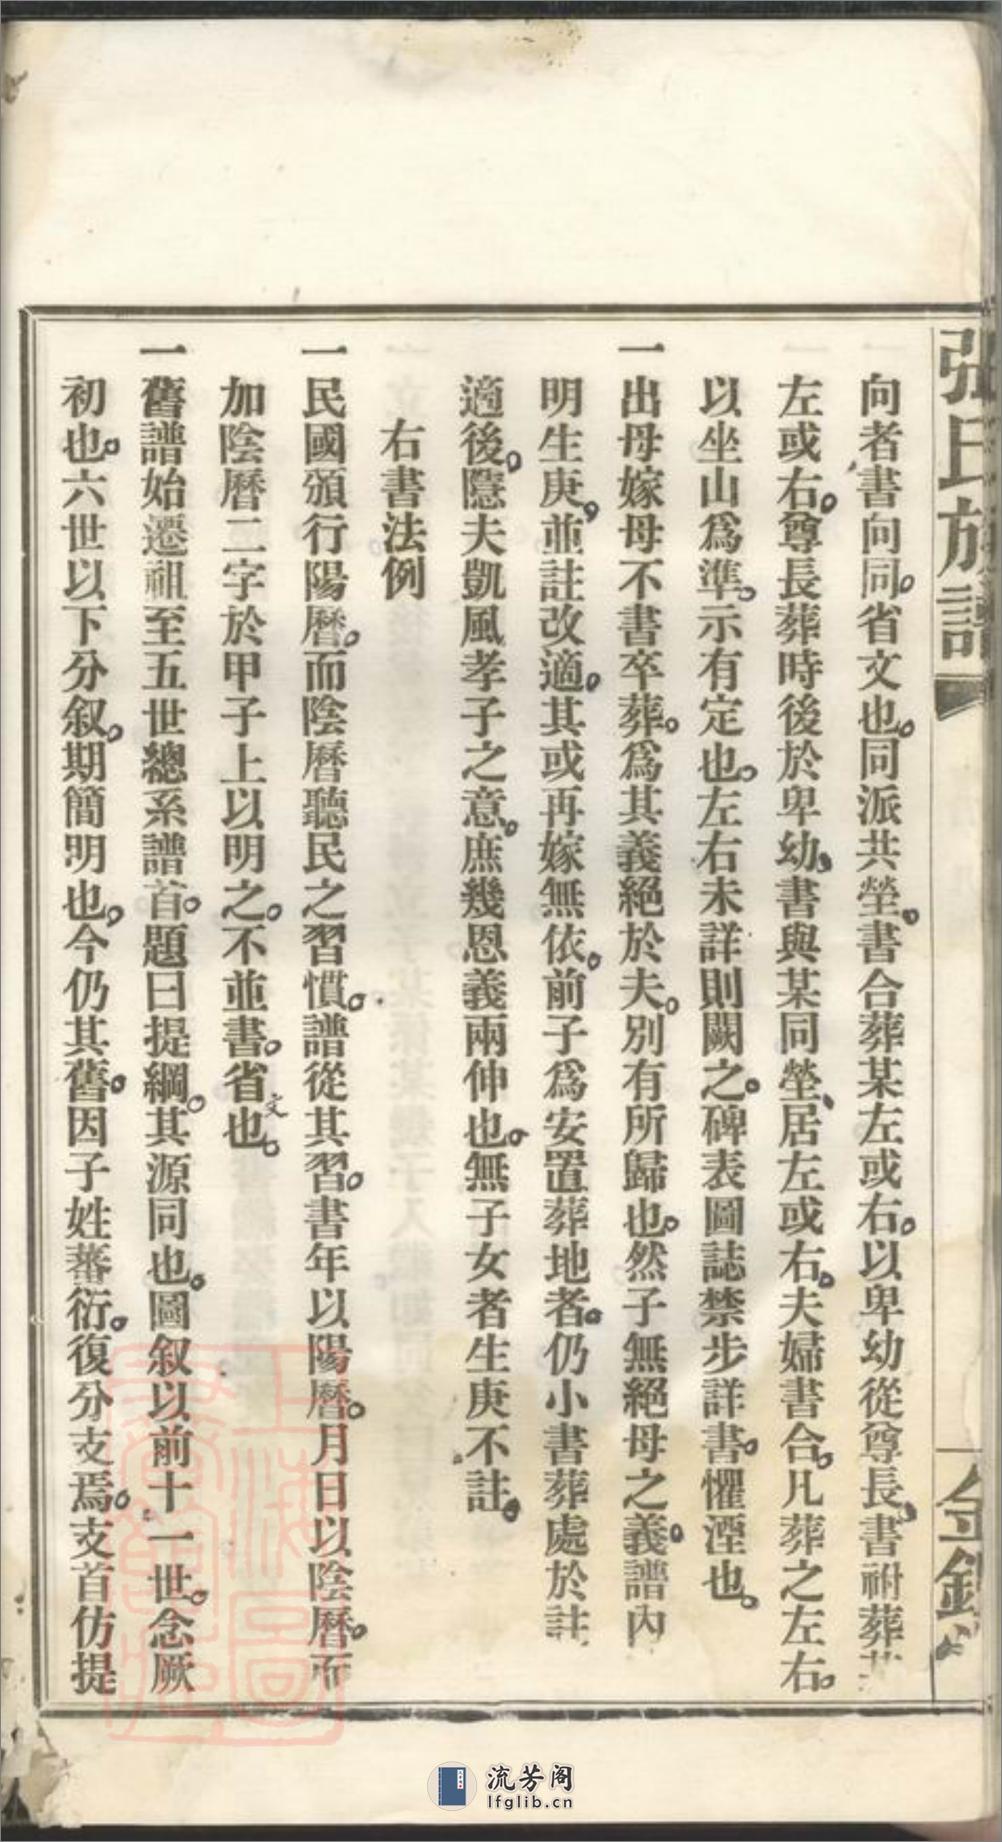 張氏族譜
金鑑
向者書向同。省文也。同派共塋。書合葬某左或右。以卑幼從尊長。書祔葬某
左或右。尊長葬時後於卑幼。書與某同塋。居左或右。夫婦書合。凡葬之左右。
以坐山爲準。示有定也。左右未詳則闕之。碑表圖誌禁步詳書。懼湮也。
一出母嫁母不書卒葬。爲其義絕於夫。別有所歸也。然子無絕母之義。譜內
明生庚。並註改適。其或再嫁無依。前子爲安置葬地者。仍小書葬處於註
適後。隱夫凱風孝子之意。庶幾恩義兩伸也。無子女者生庚不註。
右書法例
一民國頒行陽曆。而陰曆聽民之習慣。譜從其習。書年以陽曆。月日以陰曆。而
加陰曆二字於甲子上以明之。不並書。省文也。
一舊譜始遷祖至五世總系譜首。題曰提綱。其源同也。圖叙以前十一世。念厥
初也。六世以下分叙。期簡明也。今仍其舊。因子姓蕃衍。復分支焉。支首仿提
流芳阁
lfglib.cn